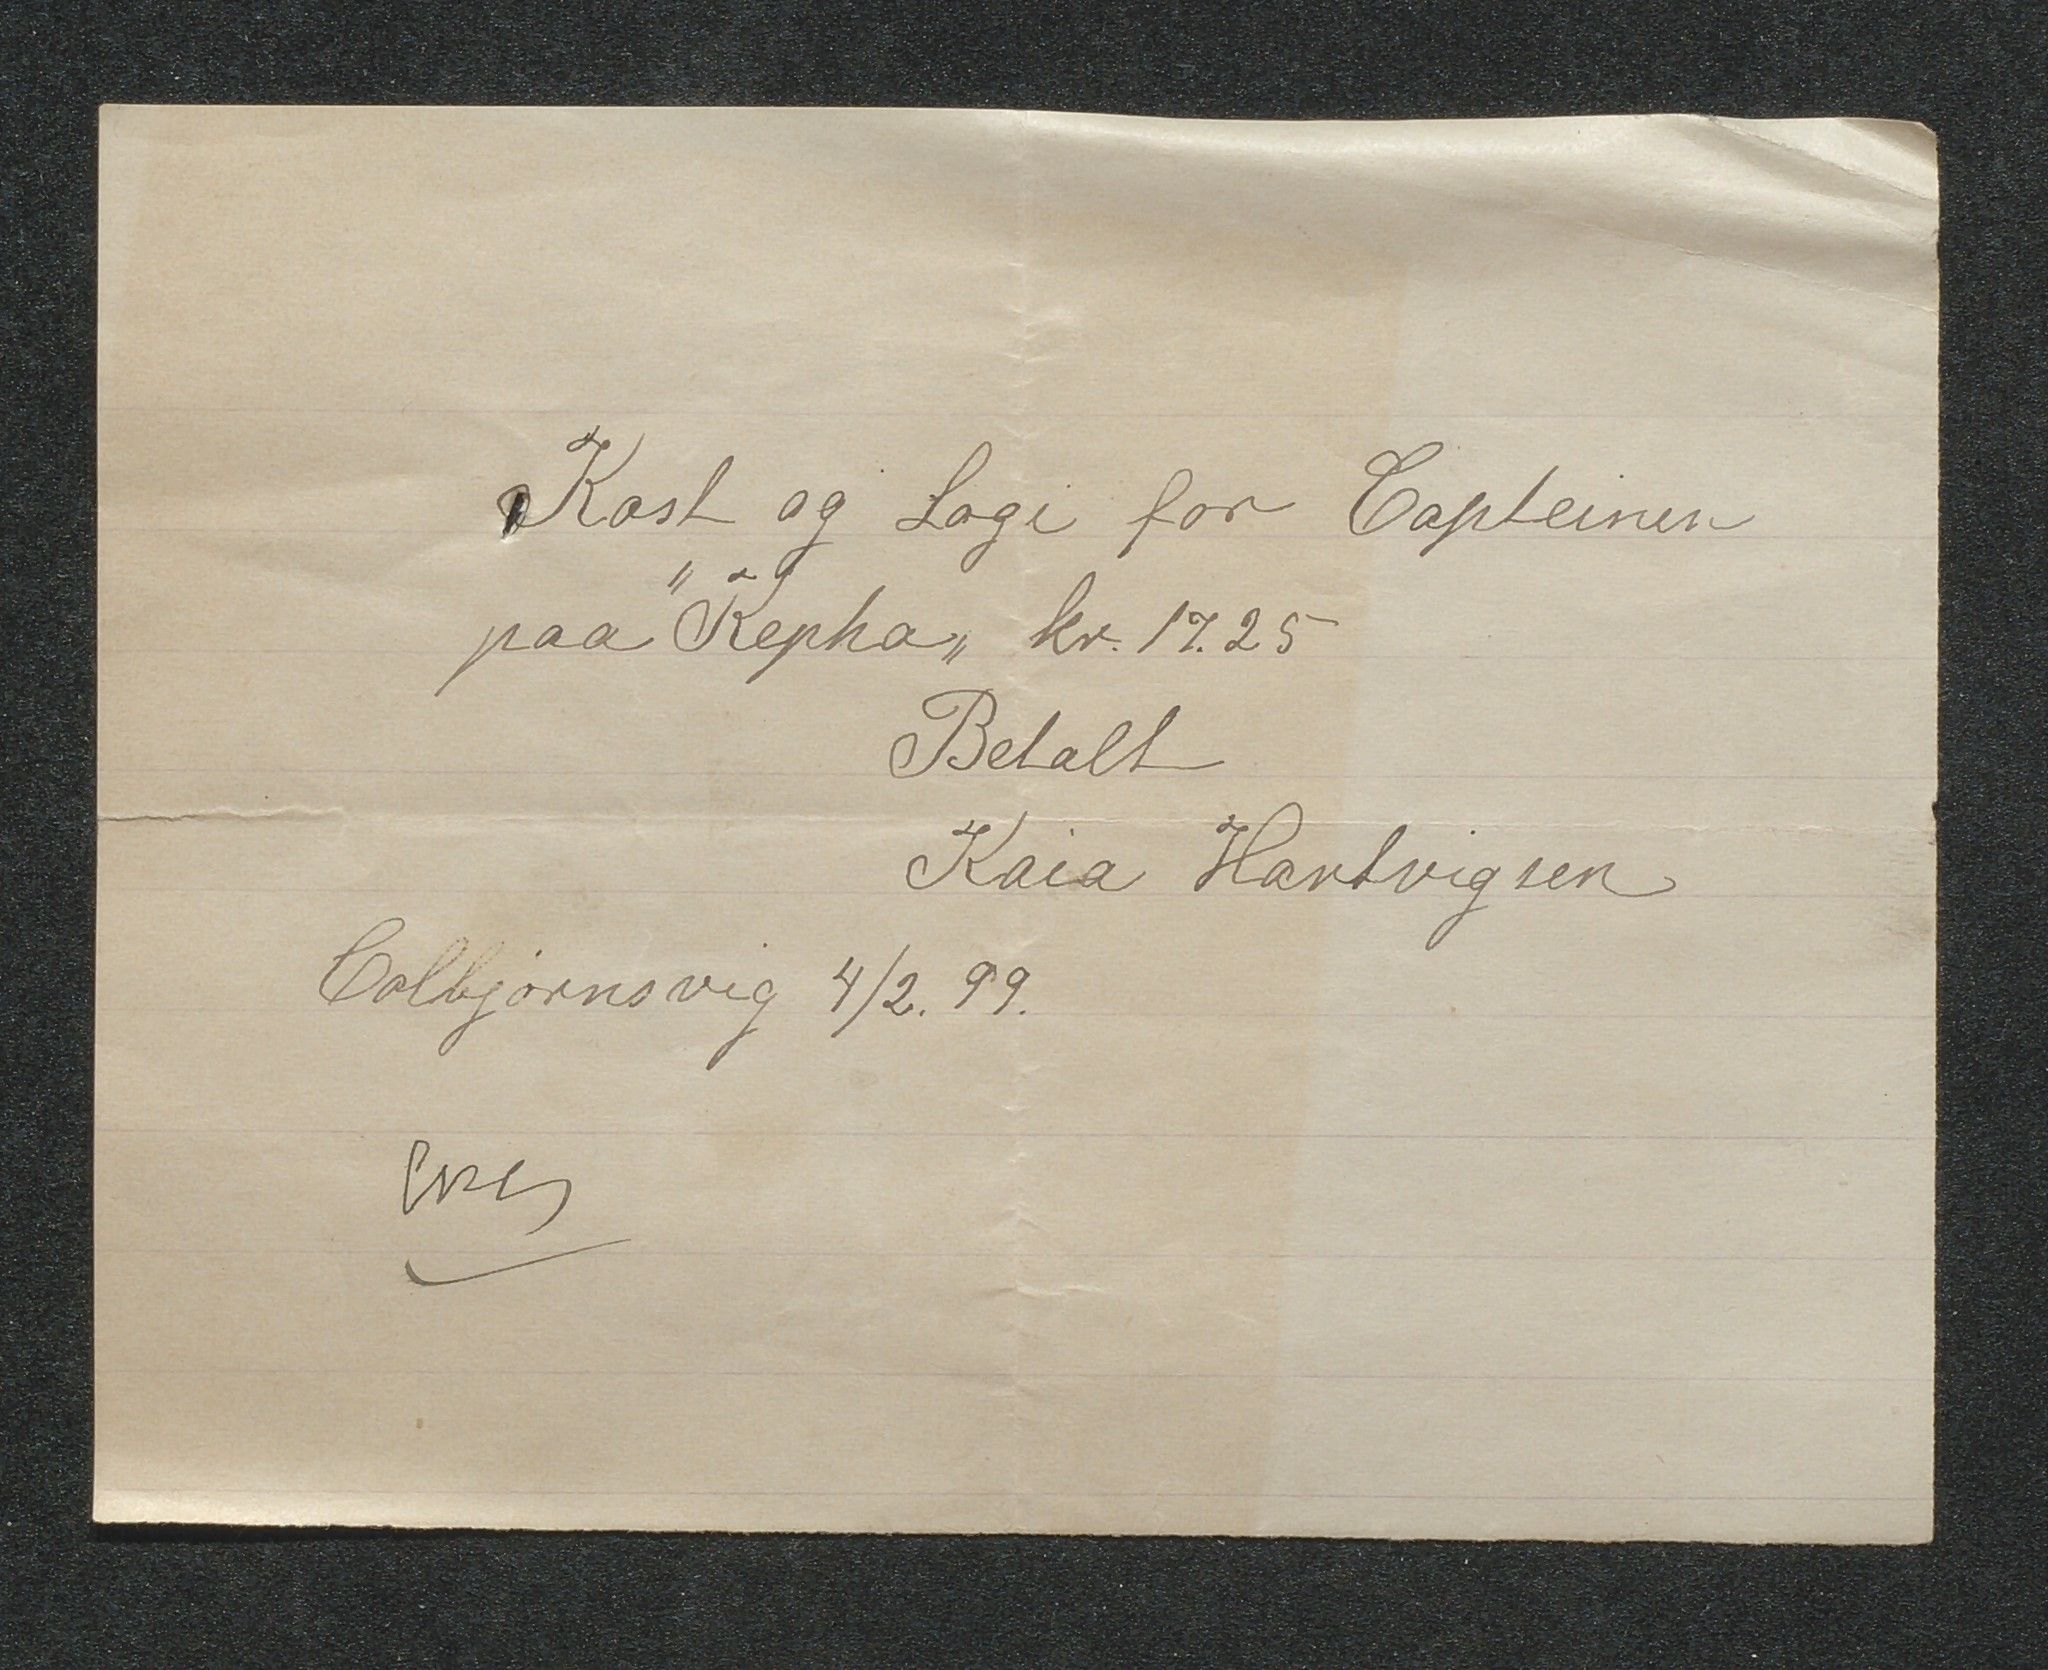 Kost og Logi for Capteinen
paa "Kepha„ kr. 17.25
Betalt
Kaia Hartvigsen
Colbjørnsvig 4/2. 99.